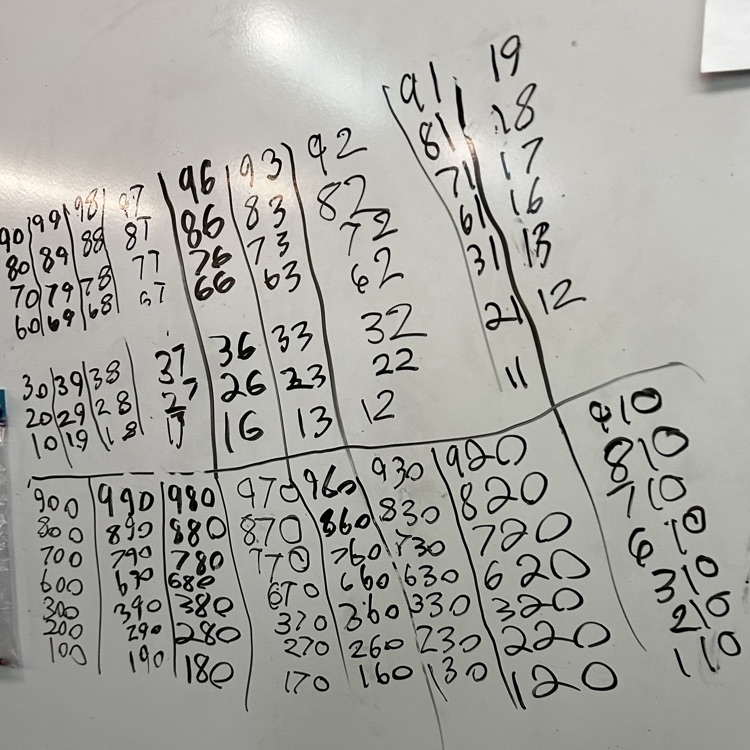 91 19
81 18
71 17
61 16
31 13
21 12
11
90 99 98 97 96 93 92
80 89 88 87 86 83 82
70 79 78 77 76 73 72
60 69 68 67 66 63 62
30 39 38 37 36 33 32
20 29 28 27 26 23 22
10 19 18 17 16 13 12
900 990 980 970 960 930 920 910
800 890 880 870 860 830 820 810
700 790 780 770 760 730 720 710
600 690 680 670 660 630 620 610
300 390 380 370 360 330 320 310
200 290 280 270 260 230 220 210
100 190 180 170 160 130 120 110